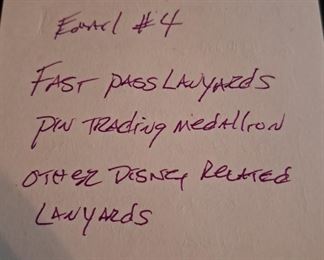 #4
FAST PASS LANYARDS
PIN TRADING MEDALLION
OTHER DISNEY RELATED
LANYARDS